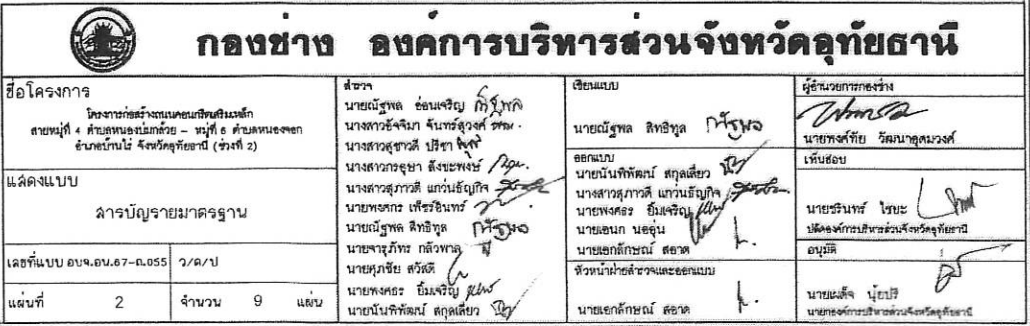 กองช่าง องค์การบริหารส่วนจังหวัดอุทัยธานี
ชื่อโครงการ
โครงการก่อสร้างถนนคอนกรีตเสริมเหล็ก
สายหมู่ที่ 4 ตำบลหนองบ่มกล้วย - หมู่ที่ 6 ตำบลหนองจอก
อำเภอบ้านไร่ จังหวัดอุทัยธานี (ช่วงที่ 2)
แสดงแบบ
สารบัญรายมาตรฐาน
เลขที่แบบ อบจ.อน.67-ถ.055 ว/ด/ป
แผ่นที่ 2 จำนวน 9 แผ่น
สำรวจ
นายณัฐพล อ่อนเจริญ
นางสาวอัจจิมา จันทร์สุวงศ์
นางสาวสุชาวดี ปรีชา
นางสาวกรอุษา สังขะพงษ์
นางสาวสุภาวดี แกว่นธัญกิจ
นายพงศกร เพ็ชรอินทร์
นายณัฐพล สิทธิทูล
นายจารุภัทร กลัวพาล
นายศุภชัย สวัสดี
นายพงศธร ยิ้มเจริญ
นายนันพิพัฒน์ สกุลเลี่ยว
เขียนแบบ
นายณัฐพล สิทธิทูล
ออกแบบ
นายนันพิพัฒน์ สกุลเลี่ยว
นางสาวสุภาวดี แกว่นธัญกิจ
นายพงศธร ยิ้มเจริญ
นายเอนก นออุ่น
นายเอกลักษณ์ สอาด
หัวหน้าฝ่ายสำรวจและออกแบบ
นายเอกลักษณ์ สอาด
ผู้อำนวยการกองช่าง
นายพงศ์ทัย วัฒนาอุดมวงค์
เห็นชอบ
นายชรินทร์ ไชยะ
ปลัดองค์การบริหารส่วนจังหวัดอุทัยธานี
อนุมัติ
นายเผด็จ นุ้ยปรี
นายกองค์การบริหารส่วนจังหวัดอุทัยธานี